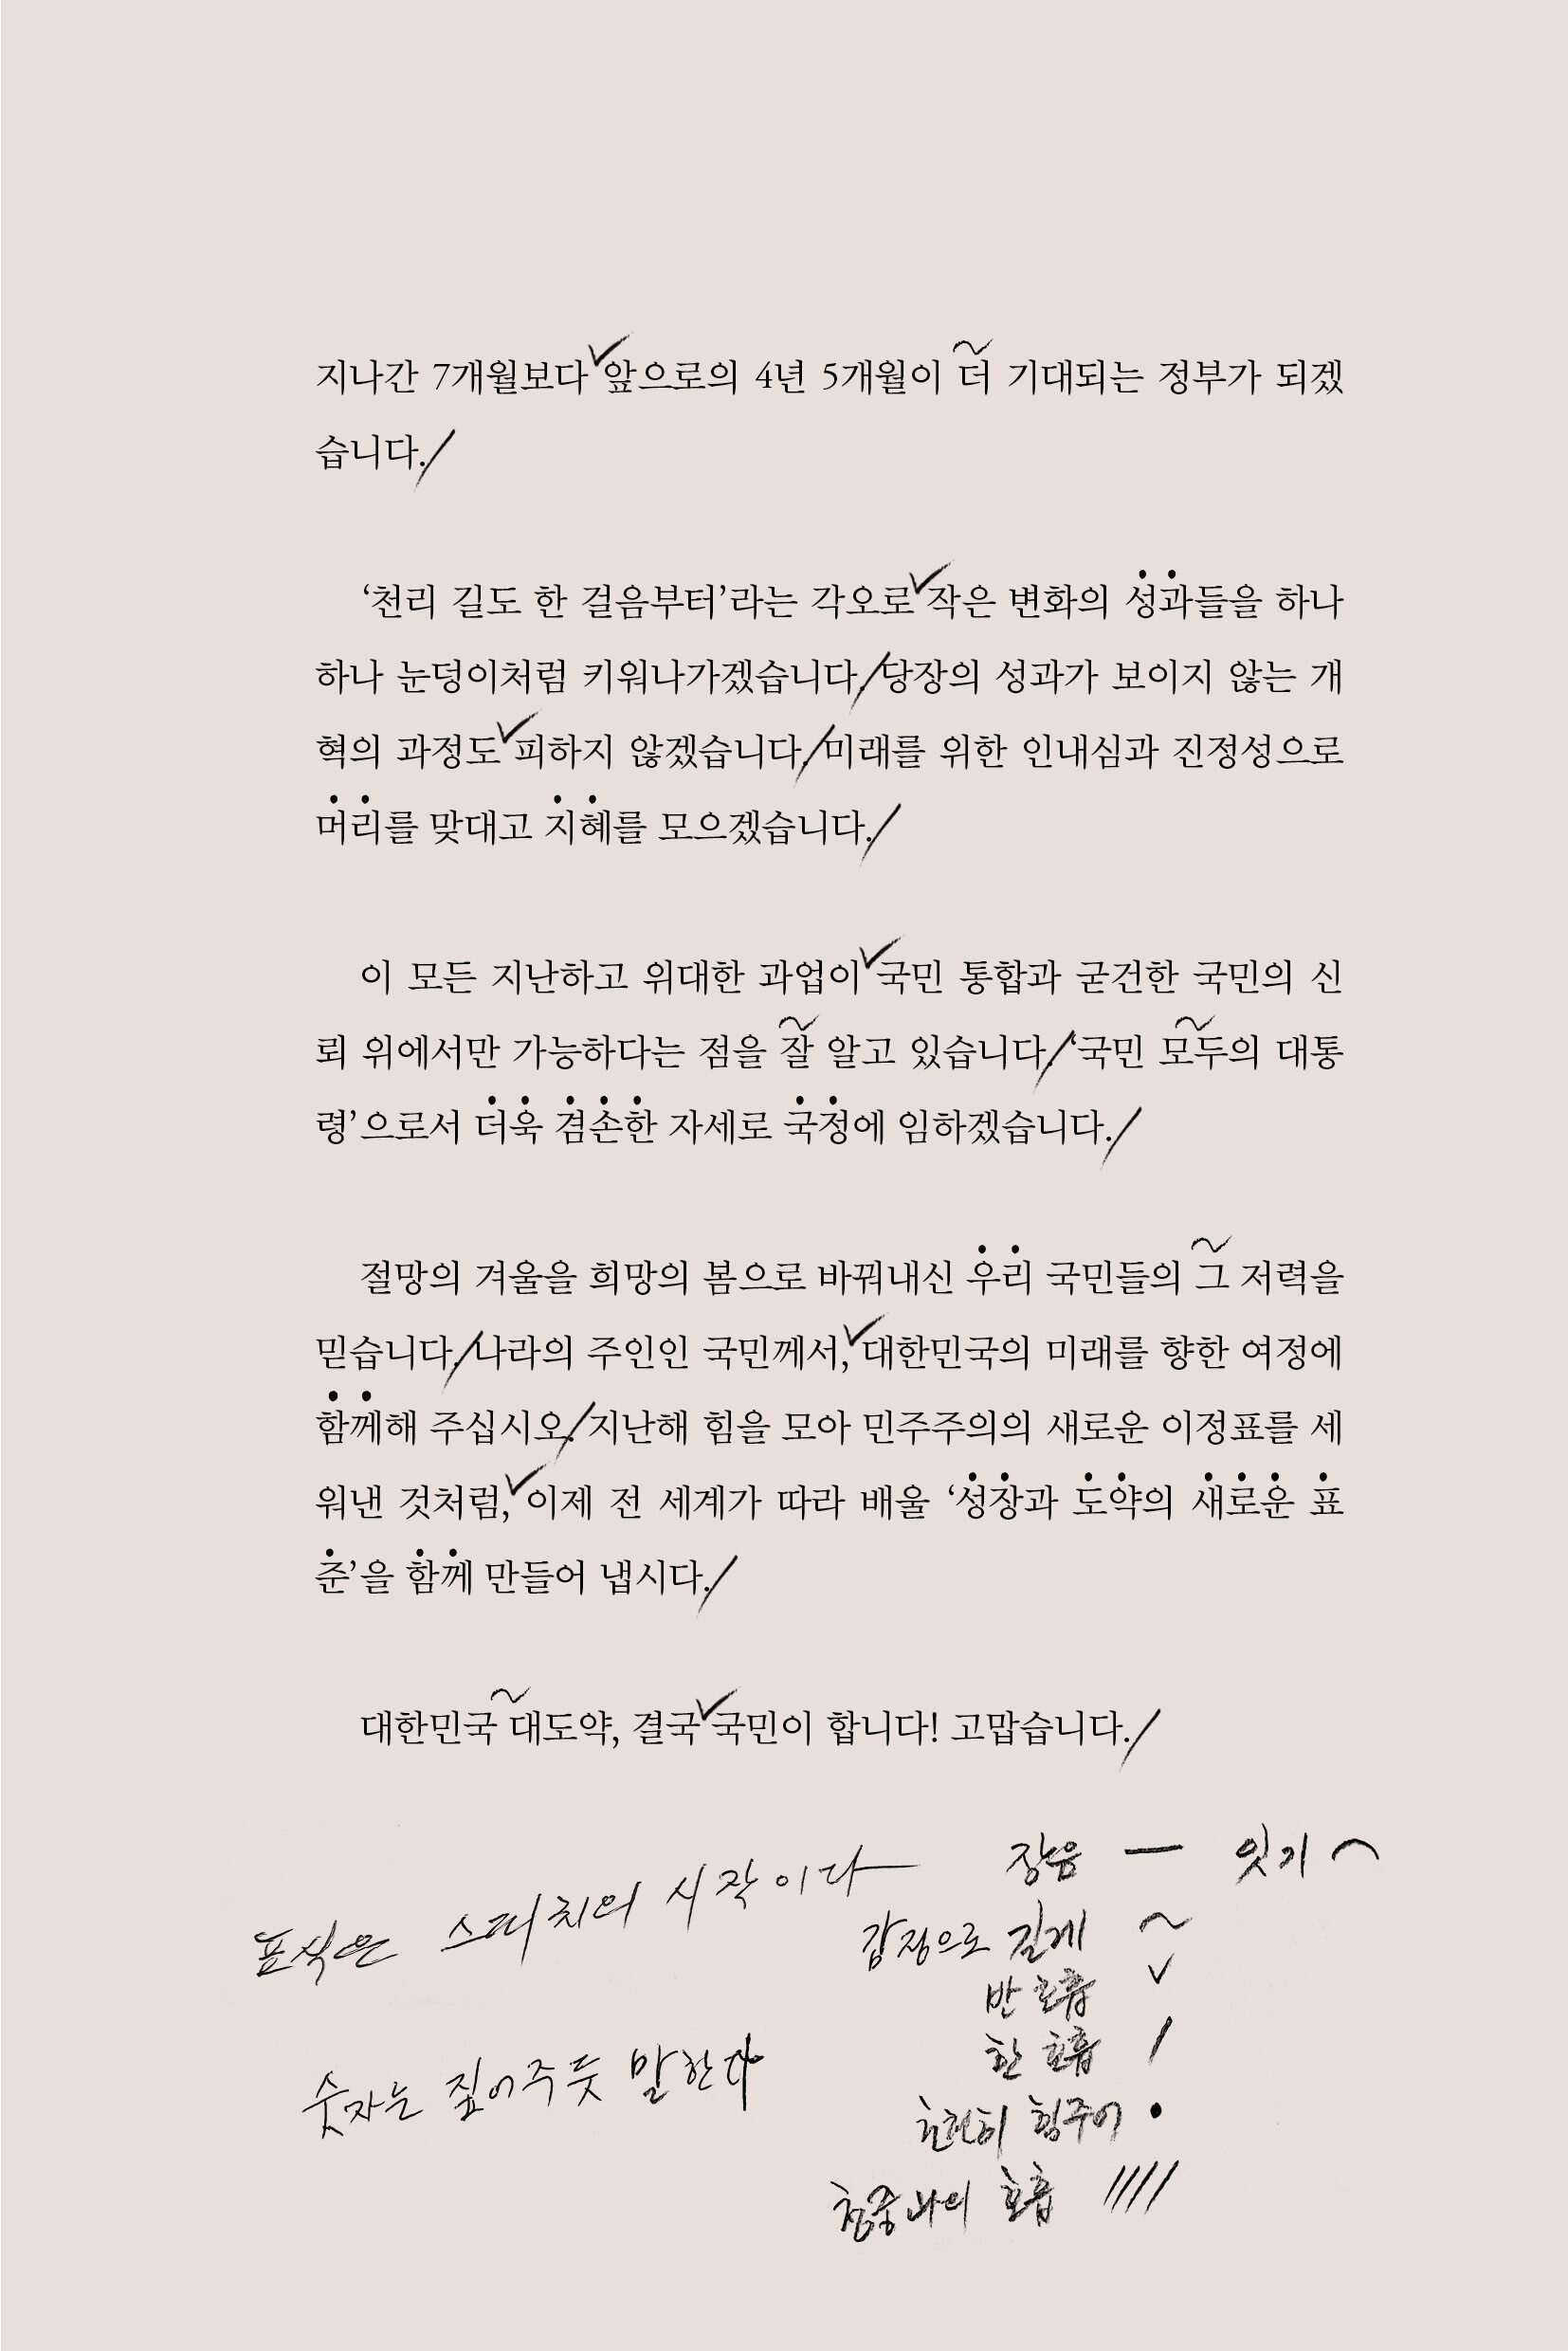 지나간 7개월보다 앞으로의 4년 5개월이 더 기대되는 정부가 되겠
습니다.
‘천리 길도 한 걸음부터’라는 각오로 작은 변화의 성과들을 하나
하나 눈덩이처럼 키워나가겠습니다. 당장의 성과가 보이지 않는 개
혁의 과정도 피하지 않겠습니다. 미래를 위한 인내심과 진정성으로
머리를 맞대고 지혜를 모으겠습니다.
이 모든 지난하고 위대한 과업이 국민 통합과 굳건한 국민의 신
뢰 위에서만 가능하다는 점을 잘 알고 있습니다. ‘국민 모두의 대통
령’으로서 더욱 겸손한 자세로 국정에 임하겠습니다.
절망의 겨울을 희망의 봄으로 바꿔내신 우리 국민들의 그 저력을
믿습니다. 나라의 주인인 국민께서, 대한민국의 미래를 향한 여정에
함께해 주십시오. 지난해 힘을 모아 민주주의의 새로운 이정표를 세
워낸 것처럼, 이제 전 세계가 따라 배울 ‘성장과 도약의 새로운 표
준’을 함께 만들어 냅시다.
대한민국 대도약, 결국 국민이 합니다! 고맙습니다.
표식은 스피치의 시작이다
숫자는 짚어주듯 말한다
장음 — 잇기 ⌒
감정으로 길게 ~
반 호흡 ∨
한 호흡 /
천천히 힘주어 •
청중과의 호흡 ////